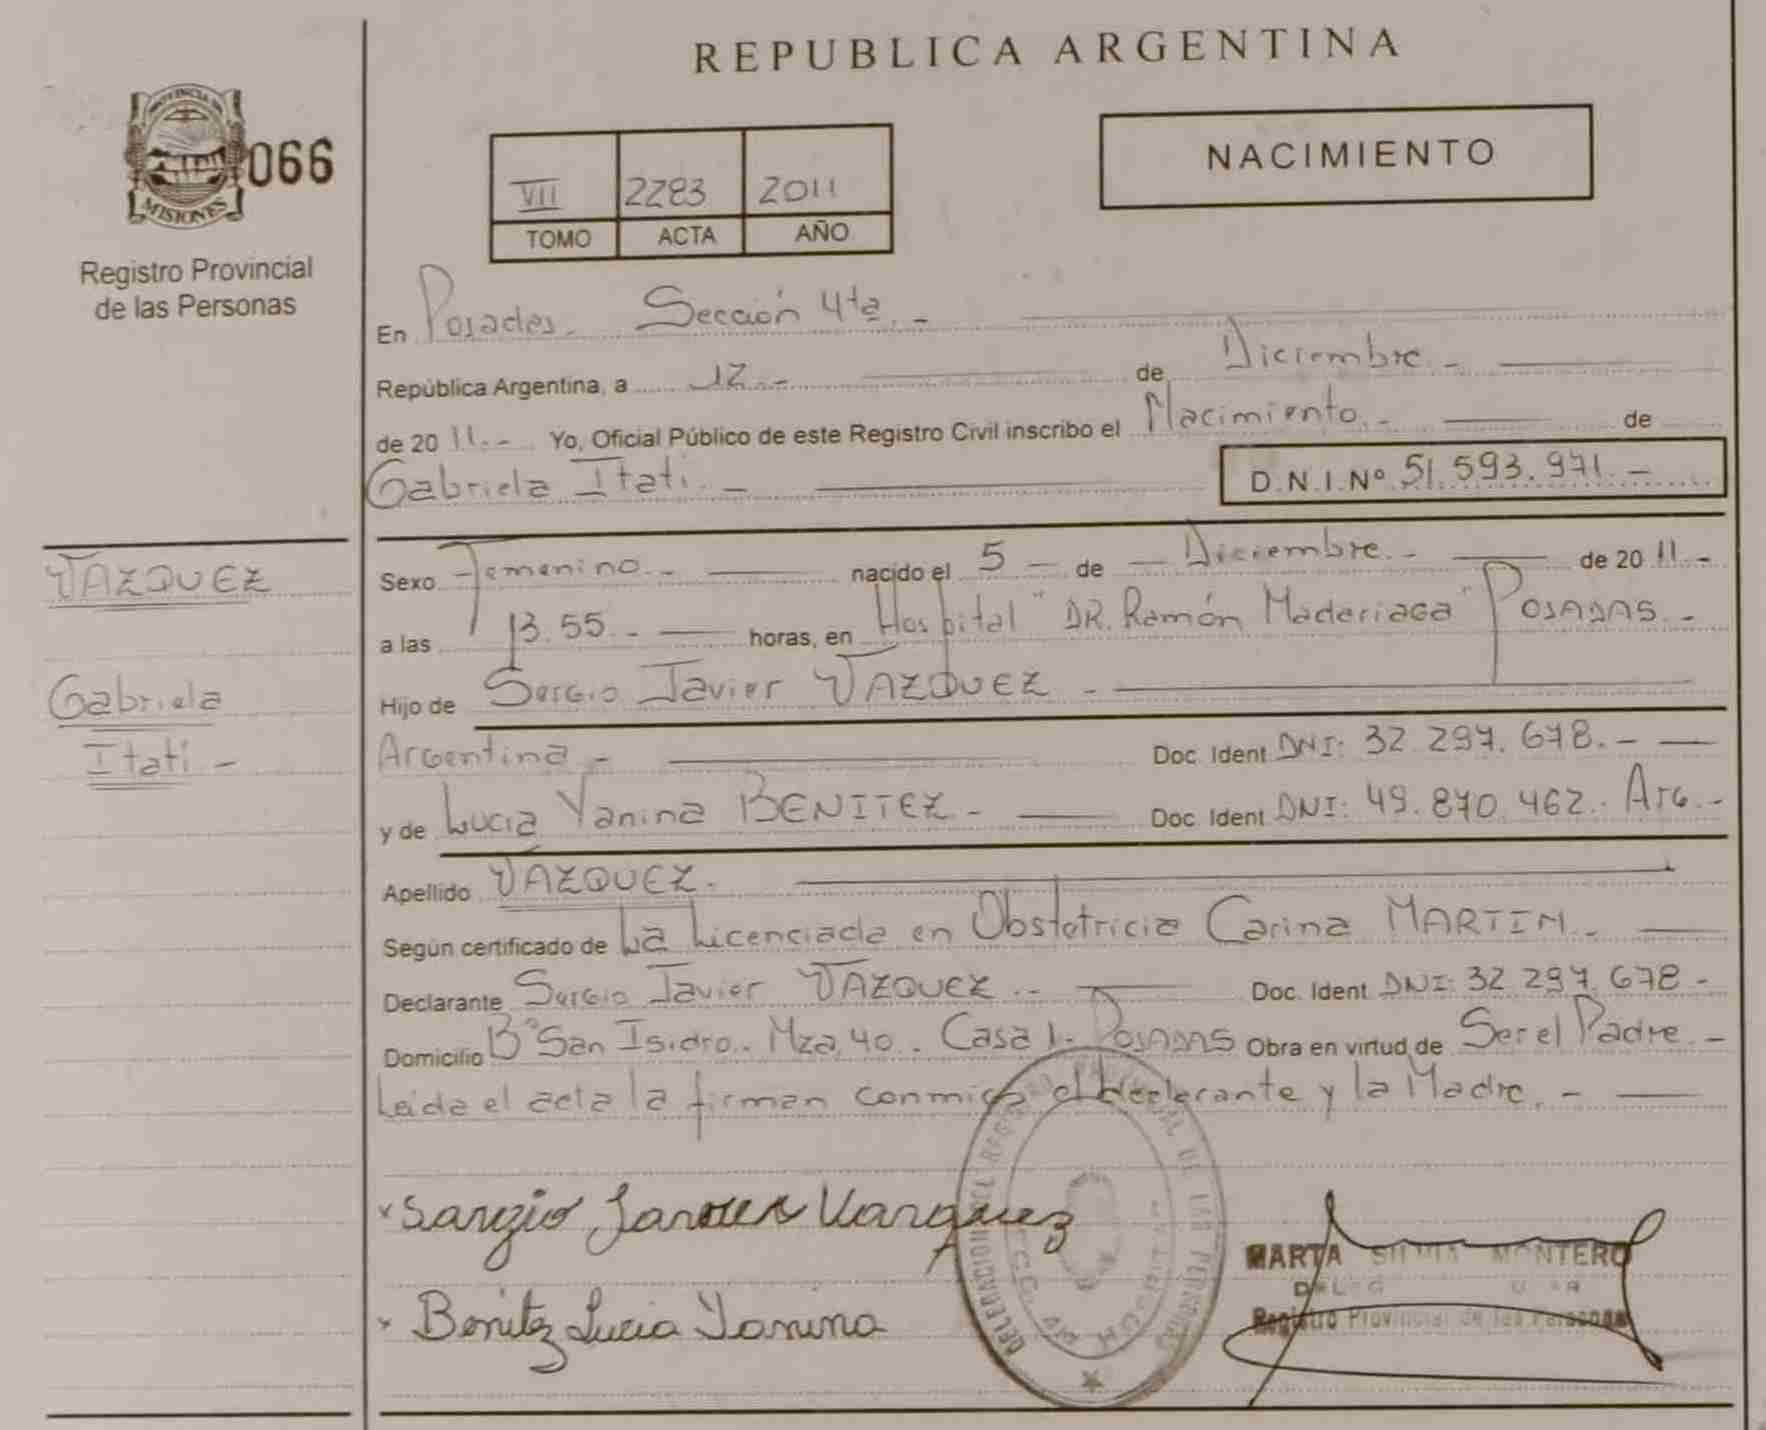 REPUBLICA ARGENTINA
PROVINCIA DE
MISIONES
066
Registro Provincial
de las Personas
VII 2283 2011
TOMO ACTA AÑO
NACIMIENTO
En Posadas. Sección 4ta. -
República Argentina, a 12. - de Diciembre. -
de 20 11. - Yo, Oficial Público de este Registro Civil inscribo el Nacimiento. - de
Gabriela Itati. - D.N.I.Nº 51.593.971. -
VAZQUEZ
Gabriela
Itati -
Sexo Femenino. - nacido el 5 - de - Diciembre. - de 20 11. -
a las 13.55. - horas, en Hospital "DR. Ramón Madariaga" POSADAS. -
Hijo de Sergio Javier VAZQUEZ -
Argentina - Doc. Ident DNI: 32.297.678. -
y de Lucia Yanina BENITEZ - Doc. Ident DNI: 49.870.462. Arg. -
Apellido VAZQUEZ.
Según certificado de La Licenciada en Obstetricia Carina MARTIN. -
Declarante Sergio Javier VAZQUEZ. - Doc. Ident DNI: 32.297.678 -
Domicilio Bº San Isidro. Mza. 40. Casa 1. POSADAS Obra en virtud de Ser el Padre -
Leida el acta la firman conmigo el declarante y la Madre. -
x Sergio Javier Vazquez
x Benitez Lucia Yanina
MARTA SILVIA MONTERO
Registro Provincial de las Personas